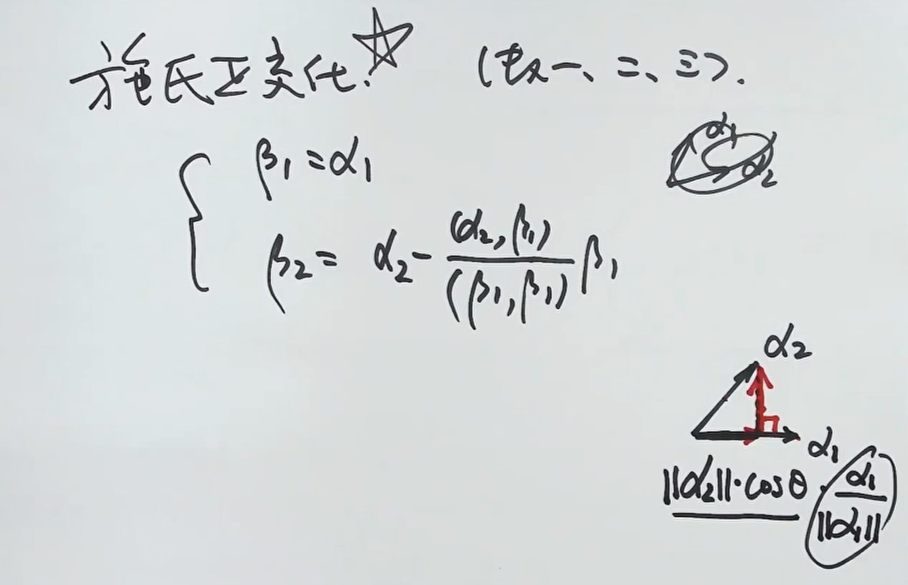 施氏正交化. ☆ (数一、二、三).
α₁
α₂
β₁=α₁
β₂= α₂- (α₂,β₁)/(β₁,β₁) β₁
α₂
α₁
||α₂||·cosθ · α₁/||α₁||